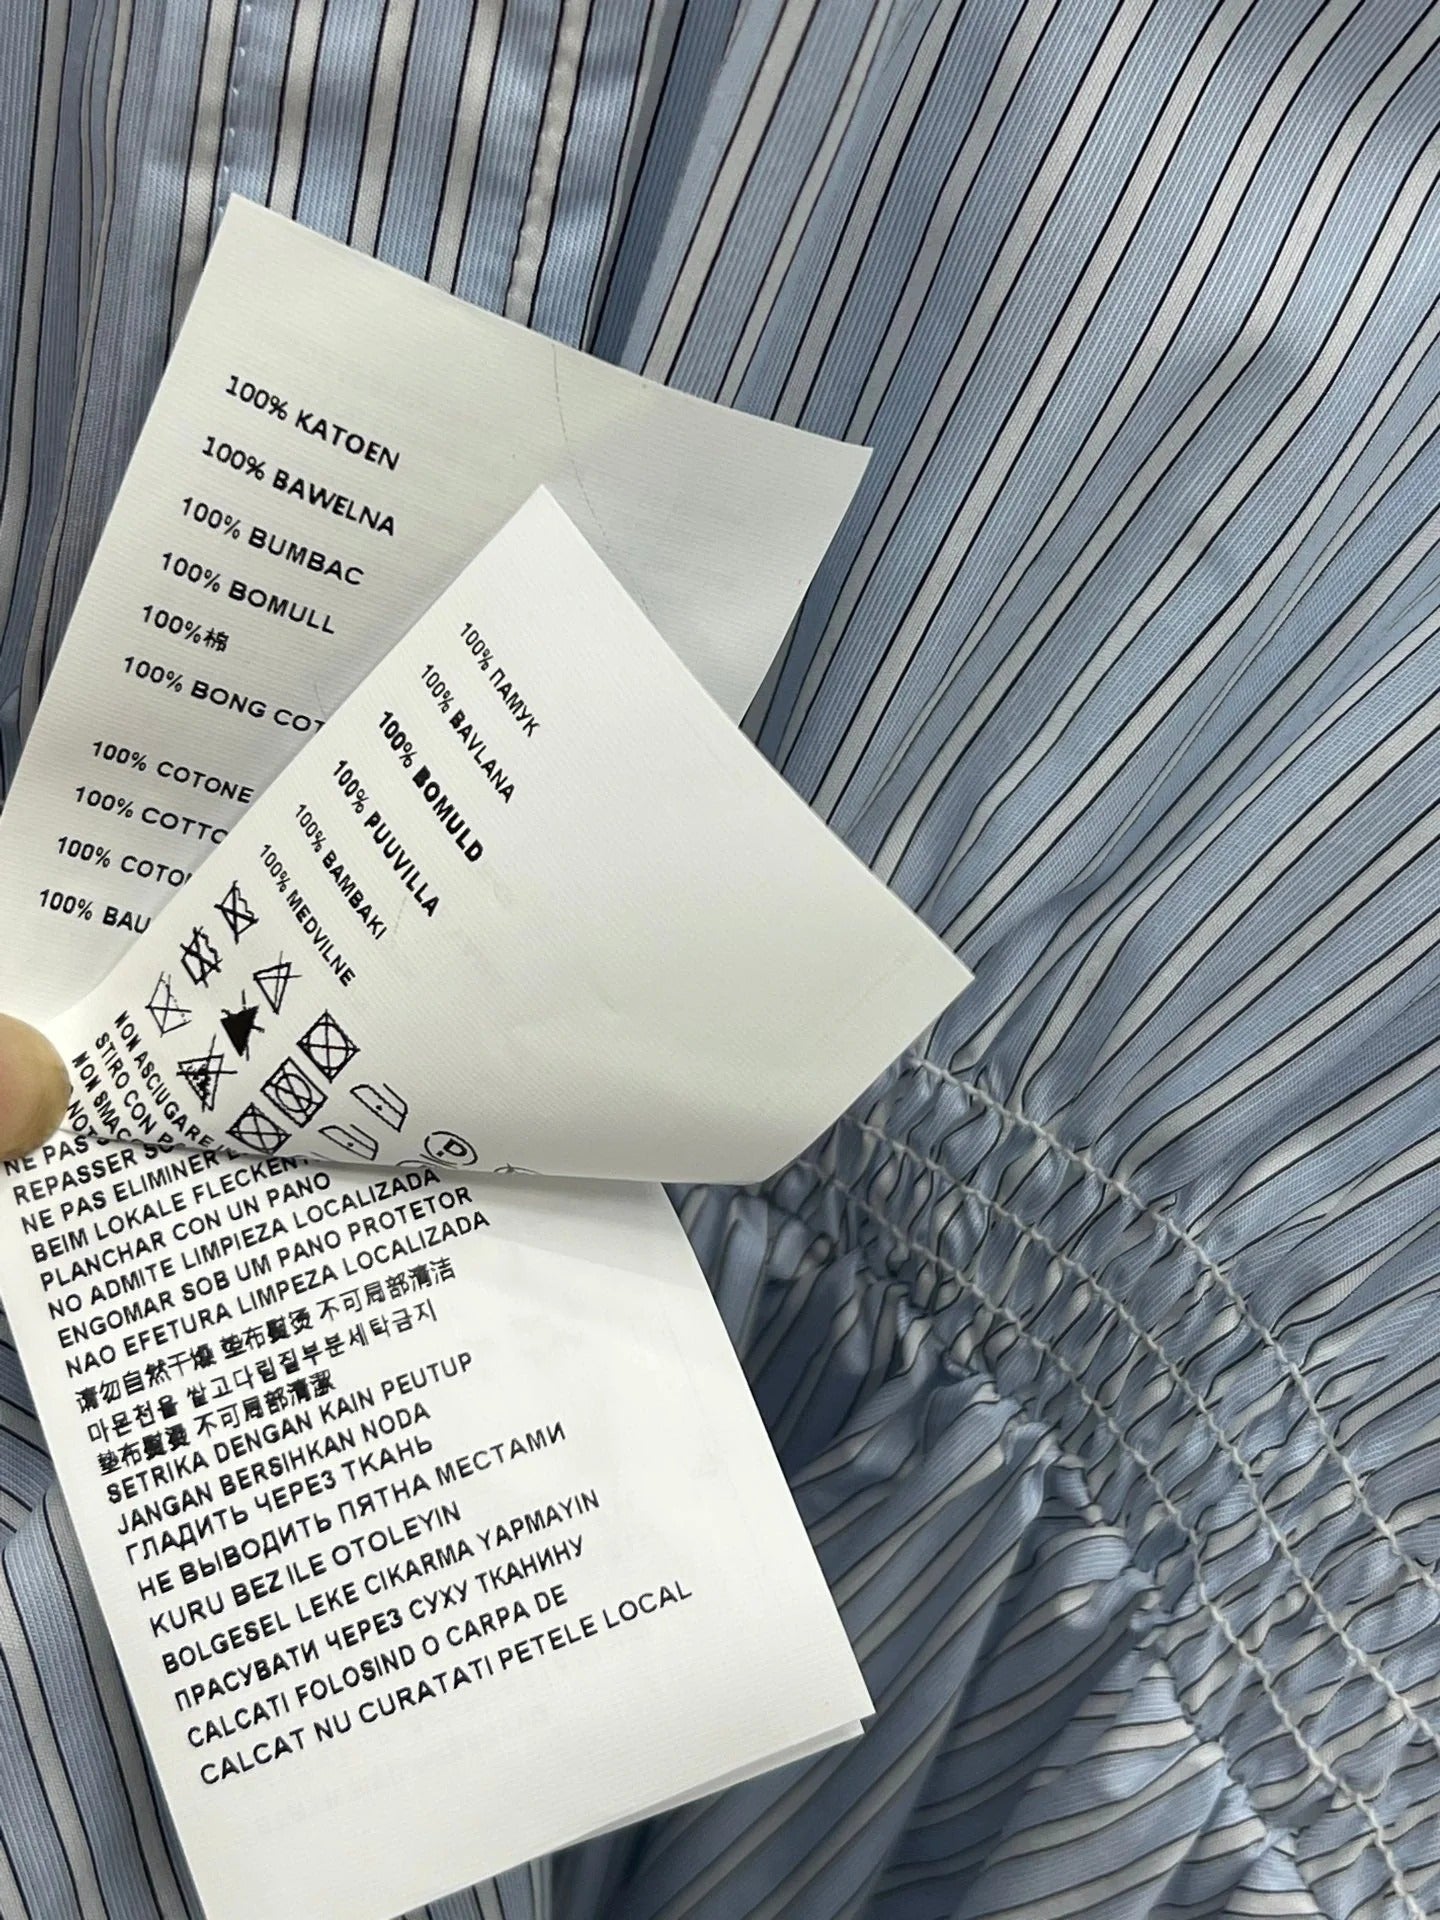 100% KATOEN
100% BAWELNA
100% BUMBAC
100% BOMULL
100%棉
100% BONG COT
100% COTONE
100% COTTO
100% COTO
100% BAU
100% ПАМУК
100% BAVLANA
100% BOMULD
100% PUUVILLA
100% BAMBAKI
100% MEDVILNE
P
NON ASCIUGARE
STIRO CON
NON SMAC
NOT
NE PAS
REPASSER
NE PAS ELIMINER
BEIM LOKALE FLECKEN
PLANCHAR CON UN PANO
NO ADMITE LIMPIEZA LOCALIZADA
ENGOMAR SOB UM PANO PROTETOR
NAO EFETURA LIMPEZA LOCALIZADA
请勿自然干燥 垫布熨烫 不可局部清洁
마몬천을 쌀고다림질부분세탁금지
墊布熨燙 不可局部清潔
SETRIKA DENGAN KAIN PEUTUP
JANGAN BERSIHKAN NODA
ГЛАДИТЬ ЧЕРЕЗ ТКАНЬ
НЕ ВЫВОДИТЬ ПЯТНА МЕСТАМИ
KURU BEZ ILE OTOLEYIN
BOLGESEL LEKE CIKARMA YAPMAYIN
ПРАСУВАТИ ЧЕРЕЗ СУХУ ТКАНИНУ
CALCATI FOLOSIND O CARPA DE
CALCAT NU CURATATI PETELE LOCAL